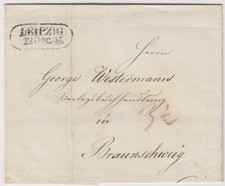 LEIPZIG
Herrn
George Westermann
Verlagsbuchhandlung
in
Braunschweig